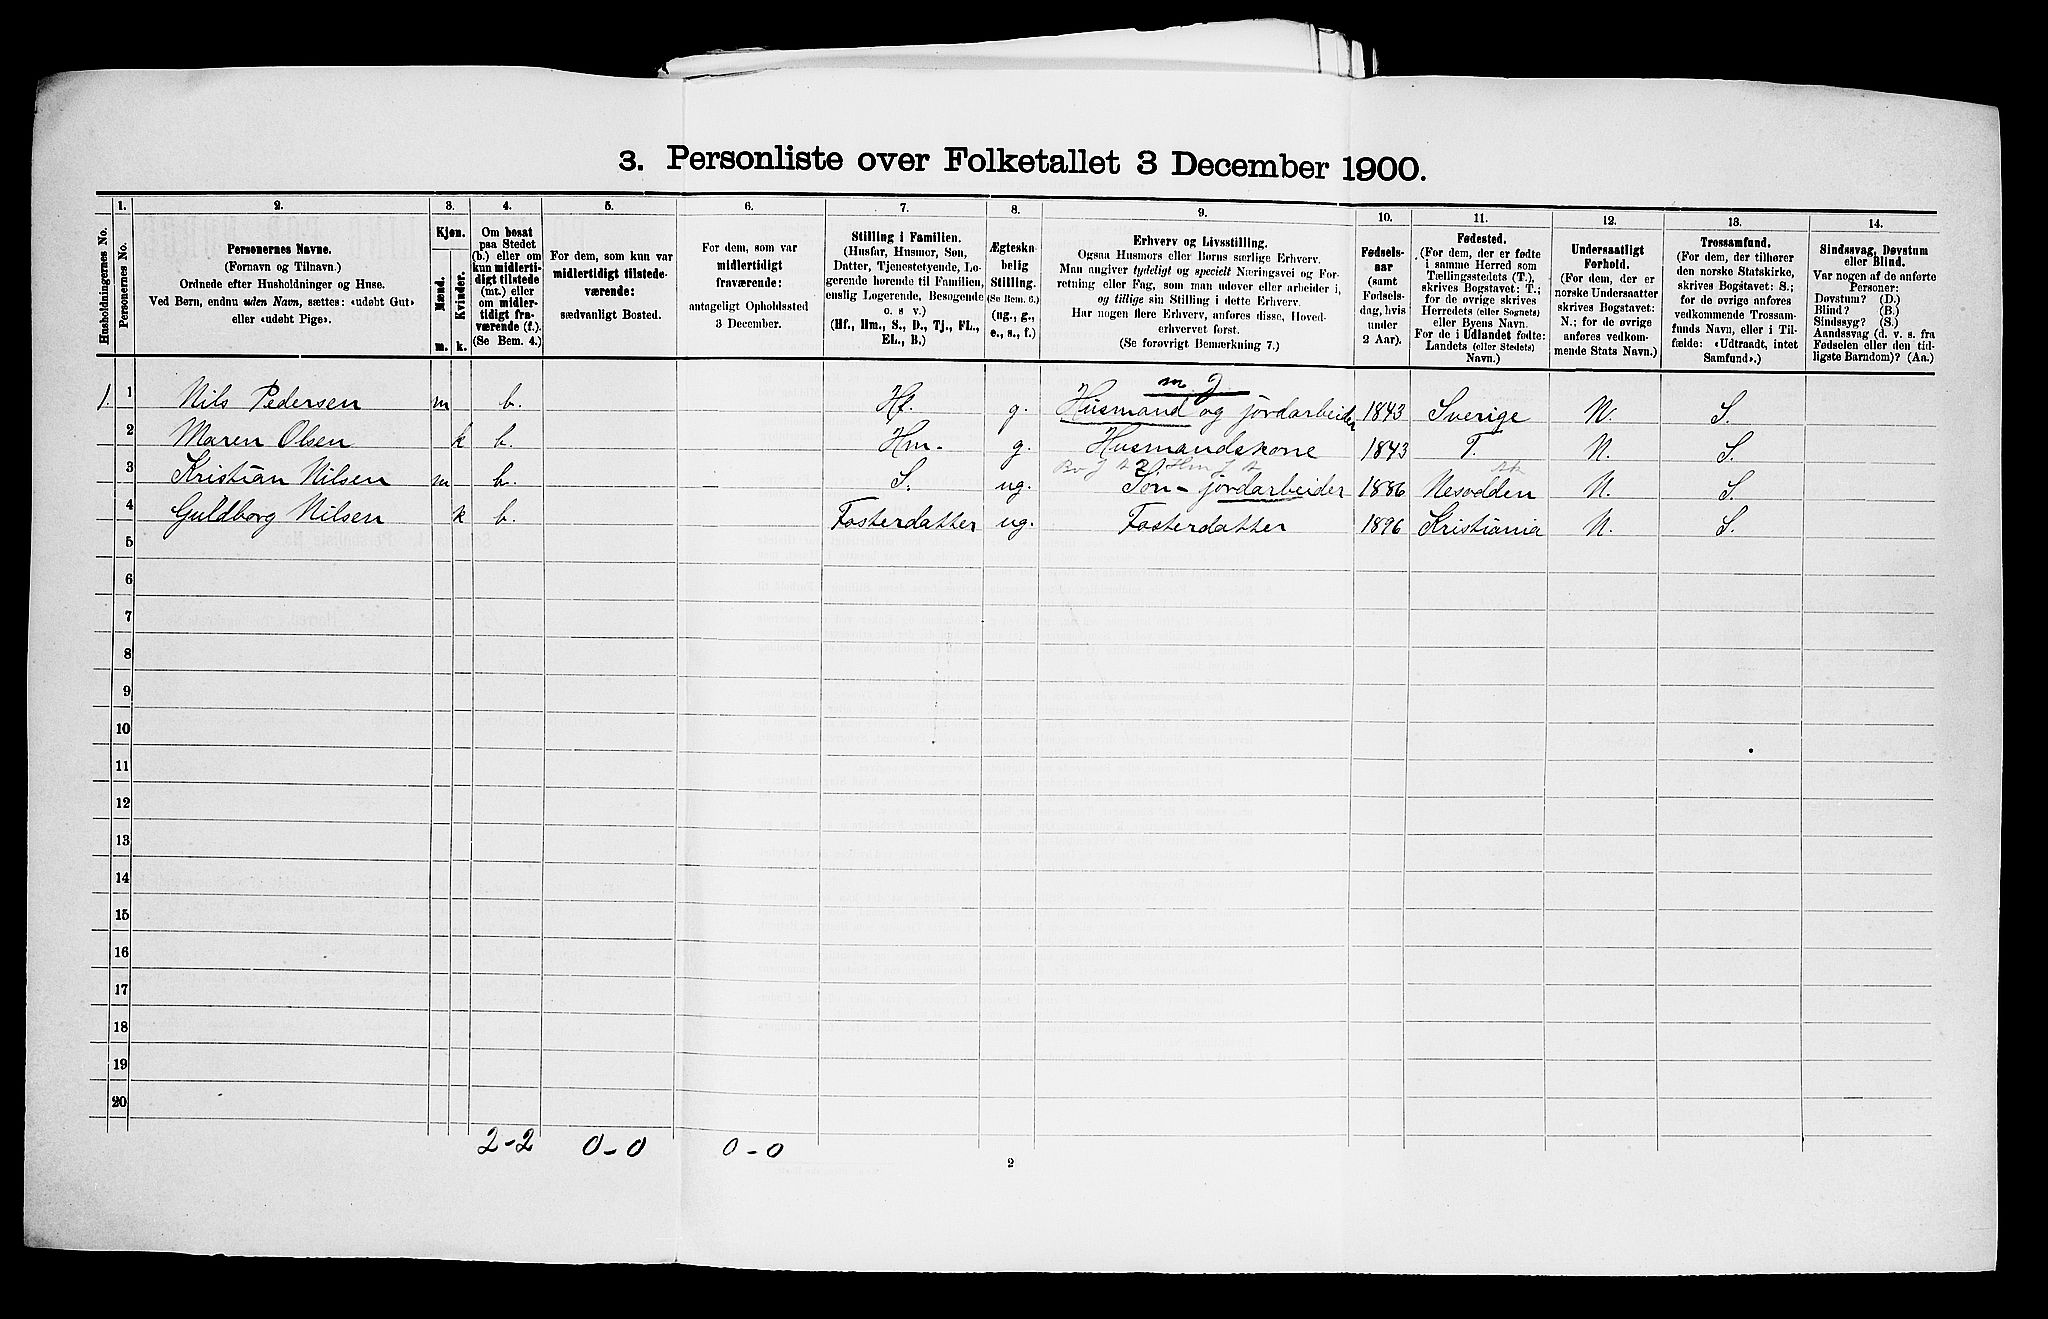 3. Personliste over Folketallet 3 December 1900.
1. 2. 3. 4. 5. 6. 7. 8. 9. 10. 11. 12. 13. 14.
Husholdningernes No.
Personernes No.
Personernes Navne.
(Fornavn og Tilnavn.)
Ordnede efter Husholdninger og Huse.
Ved Børn, endnu uden Navn, sættes: «udøbt Gut»
eller «udøbt Pige».
Kjøn.
Mænd.
Kvinder.
m. k.
Om bosat
paa Stedet
(b.) eller om
kun midlerti-
digt tilstede
(mt.) eller
om midler-
tidigt fra-
værende (f.).
(Se Bem. 4.)
For dem, som kun var
midlertidigt tilstede-
værende:
sædvanligt Bosted.
For dem, som var
midlertidigt
fraværende:
antageligt Opholdssted
3 December.
Stilling i Familien.
(Husfar, Husmor, Søn,
Datter, Tjenestetyende, Lo-
gerende hørende til Familien,
enslig Logerende, Besøgende
o. s v.)
(Hf., Hm., S., D., Tj., FL.,
EL., B.)
Ægteska-
belig
Stilling.
(Se Bem. 6.)
(ug., g.,
e., s., f.)
Erhverv og Livsstilling.
Ogsaa Husmors eller Børns særlige Erhverv.
Man angiver tydeligt og specielt Næringsvei og For-
retning eller Fag, som man udøver eller arbeider i,
og tillige sin Stilling i dette Erhverv.
Har nogen flere Erhverv, anføres disse, Hoved-
erhvervet først.
(Se forøvrigt Bemærkning 7.)
Fødsels-
aar
(samt
Fødsels-
dag, hvis
under
2 Aar).
Fødested.
(For dem, der er fødte
i samme Herred som
Tællingsstedets (T.),
skrives Bogstavet: T.;
for de øvrige skrives
Herredets (eller Sognets)
eller Byens Navn.
For de i Udlandet fødte:
Landets (eller Stedets)
Navn.)
Undersaatligt
Forhold.
(For dem, der er
norske Undersaatter
skrives Bogstavet:
N.; for de øvrige
anføres vedkom-
mende Stats Navn.)
Trossamfund.
(For dem, der tilhører
den norske Statskirke,
skrives Bogstavet: S.;
for de øvrige anføres
vedkommende Trossam-
funds Navn, eller i Til-
fælde: «Udtraadt, intet
Samfund».)
Sindssvag, Døvstum
eller Blind.
Var nogen af de anførte
Personer:
Døvstum? (D.)
Blind? (B.)
Sindssyg? (S.)
Aandssvag (d. v. s. fra
Fødselen eller den tid-
ligste Barndom)? (Aa.)
m. J.
1. 1 Nils Pedersen m b. Hf. g. Husmand og jordarbeider 1843 Sverige N. S.
2 Maren Olsen k b. Hm. g. Husmandskone 1843 T. N. S.
3 Kristian Nilsen m b. S. ug. Søn - jordarbeider 1886 Nesodden N. S.
4 Guldborg Nilsen k b. Fosterdatter ug. Fosterdatter 1896 Kristiania N. S.
5
6
7
8
9
10
11
12
13
14
15
16
17
18
19
20
2-2 0-0 0-0
2